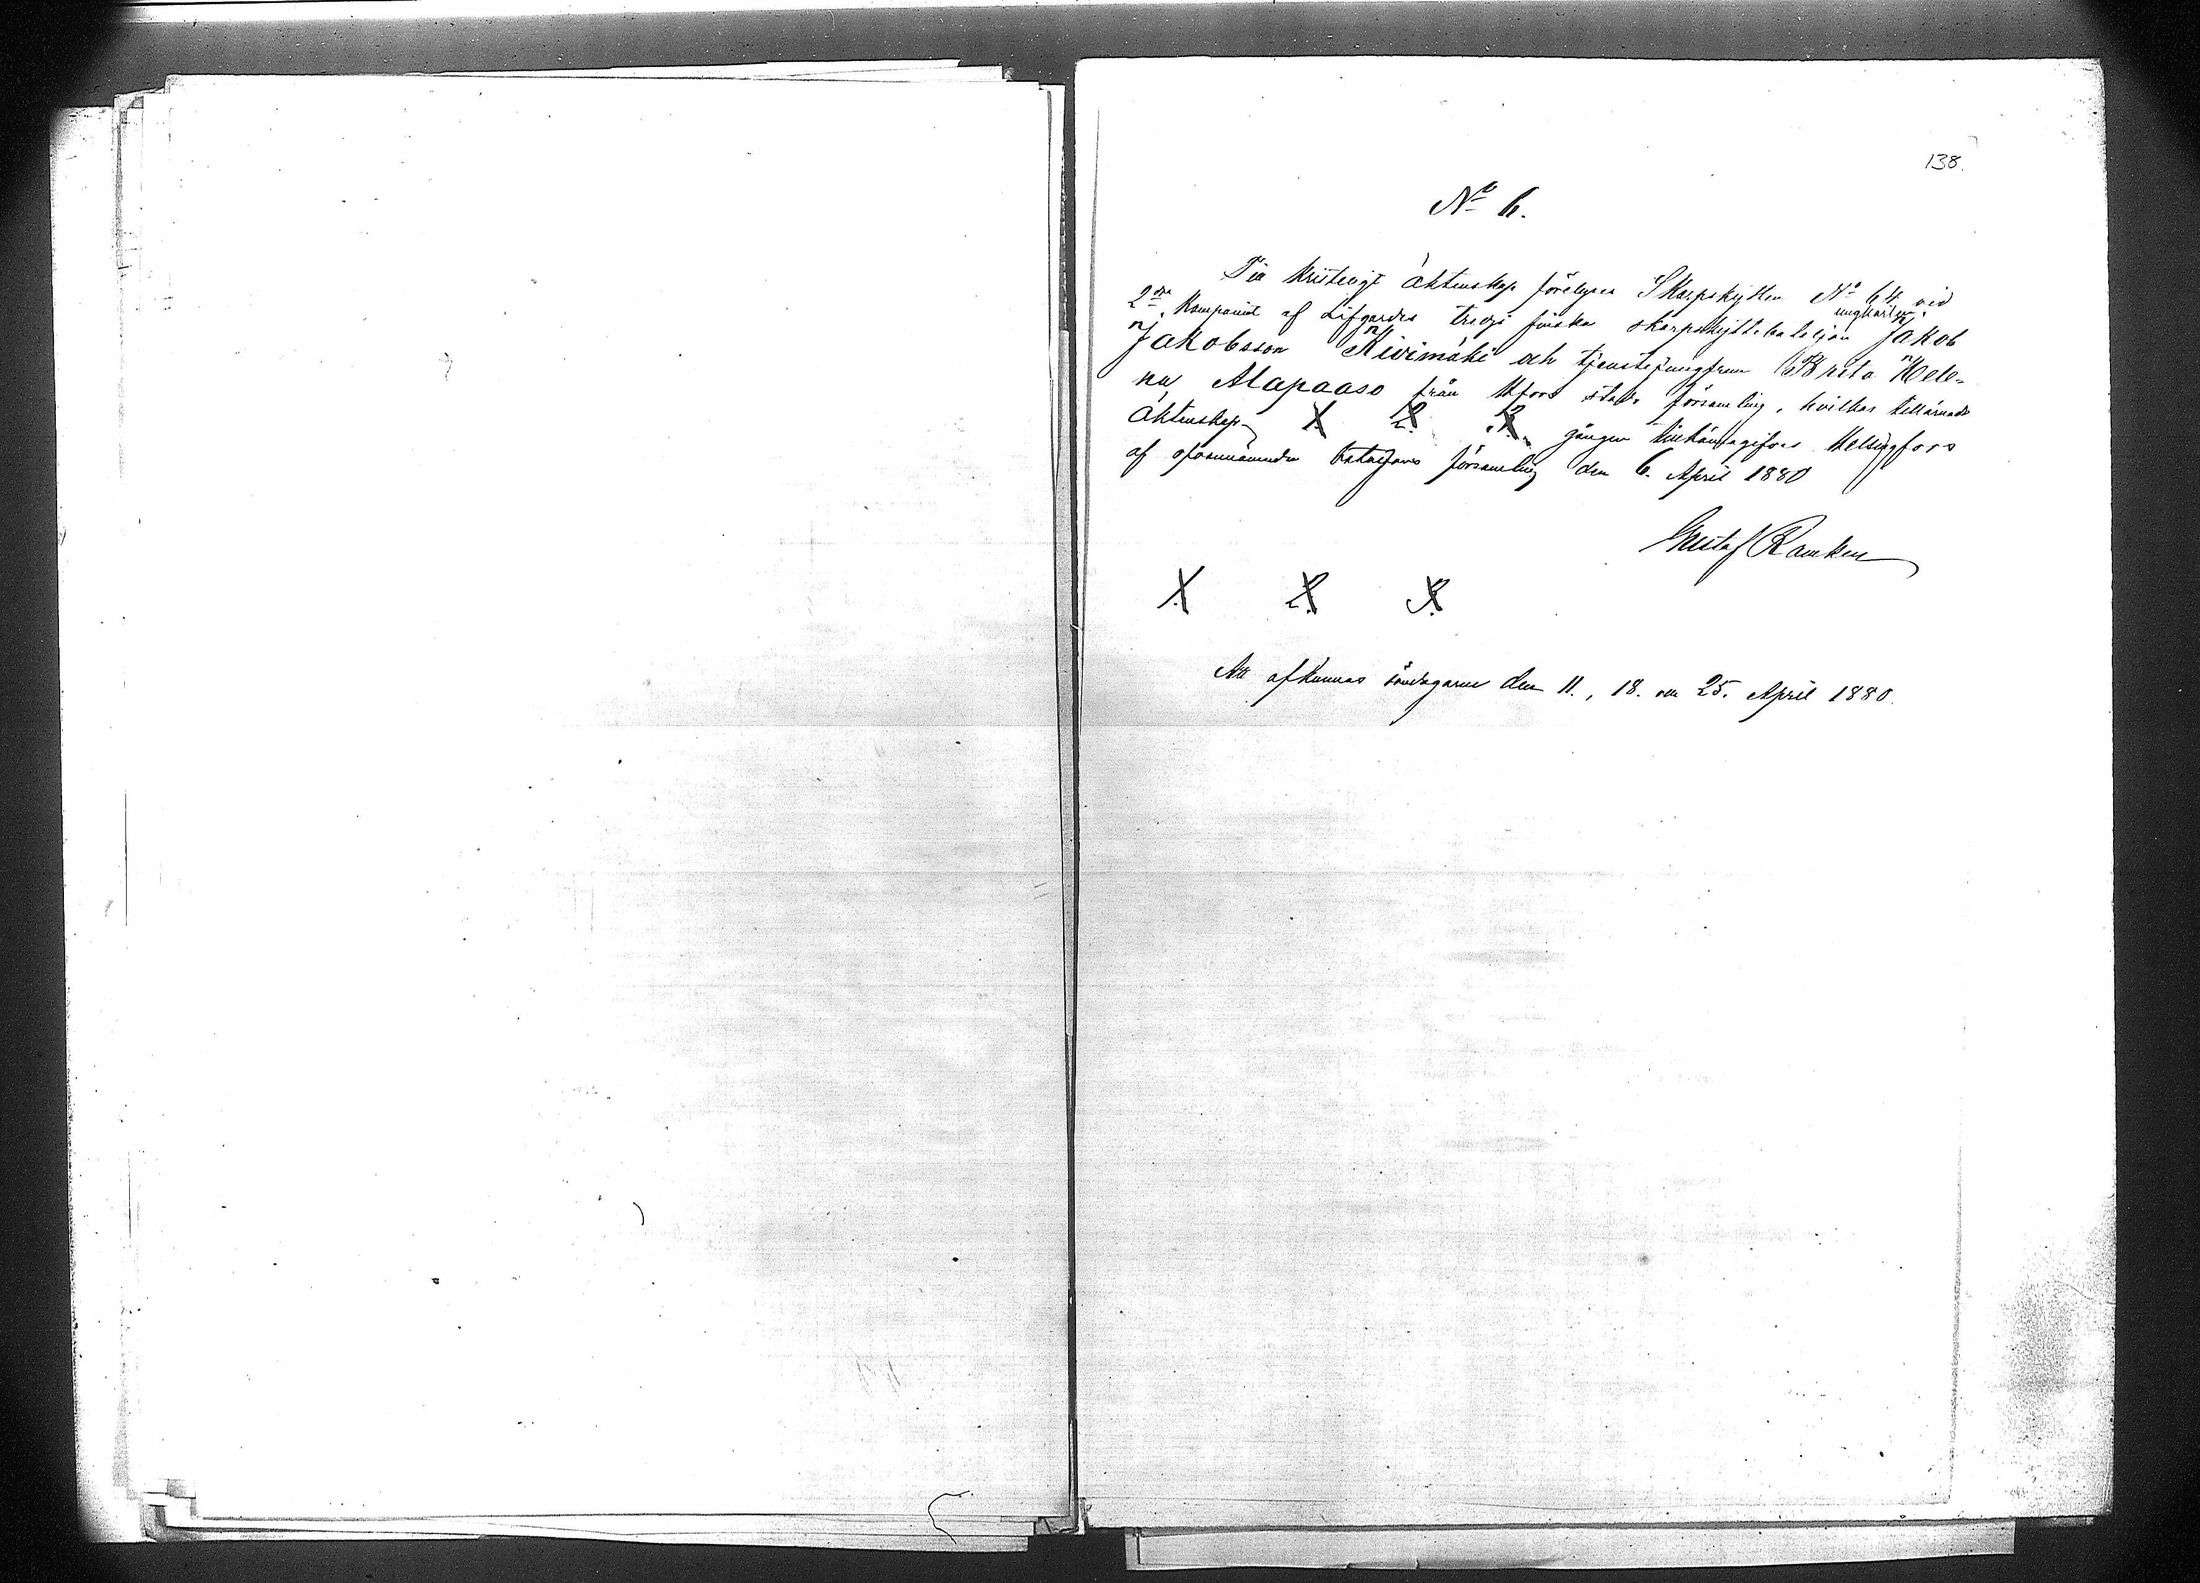 138.
No 6.
Till kristeligt äktenskap förelyses Skarpskytten No 64 vid
ungkarlen
2dra Kompaniet af Lifgardes tredje finska skarpskyttebataljon Jakob
Jakobsson Kivimäki och tjenstejungfrun Brita Hele-
na Alapaaso från Hfors stads församling, hvilkas tillärnade
äktenskap 1. 2. 3. gången Helsingfors
af ofvannämnda bataljons församling den 6. April 1880
Gustaf Ramken
1. 2. 3.
Att afkunnas söndagarne den 11., 18. och 25. April 1880.